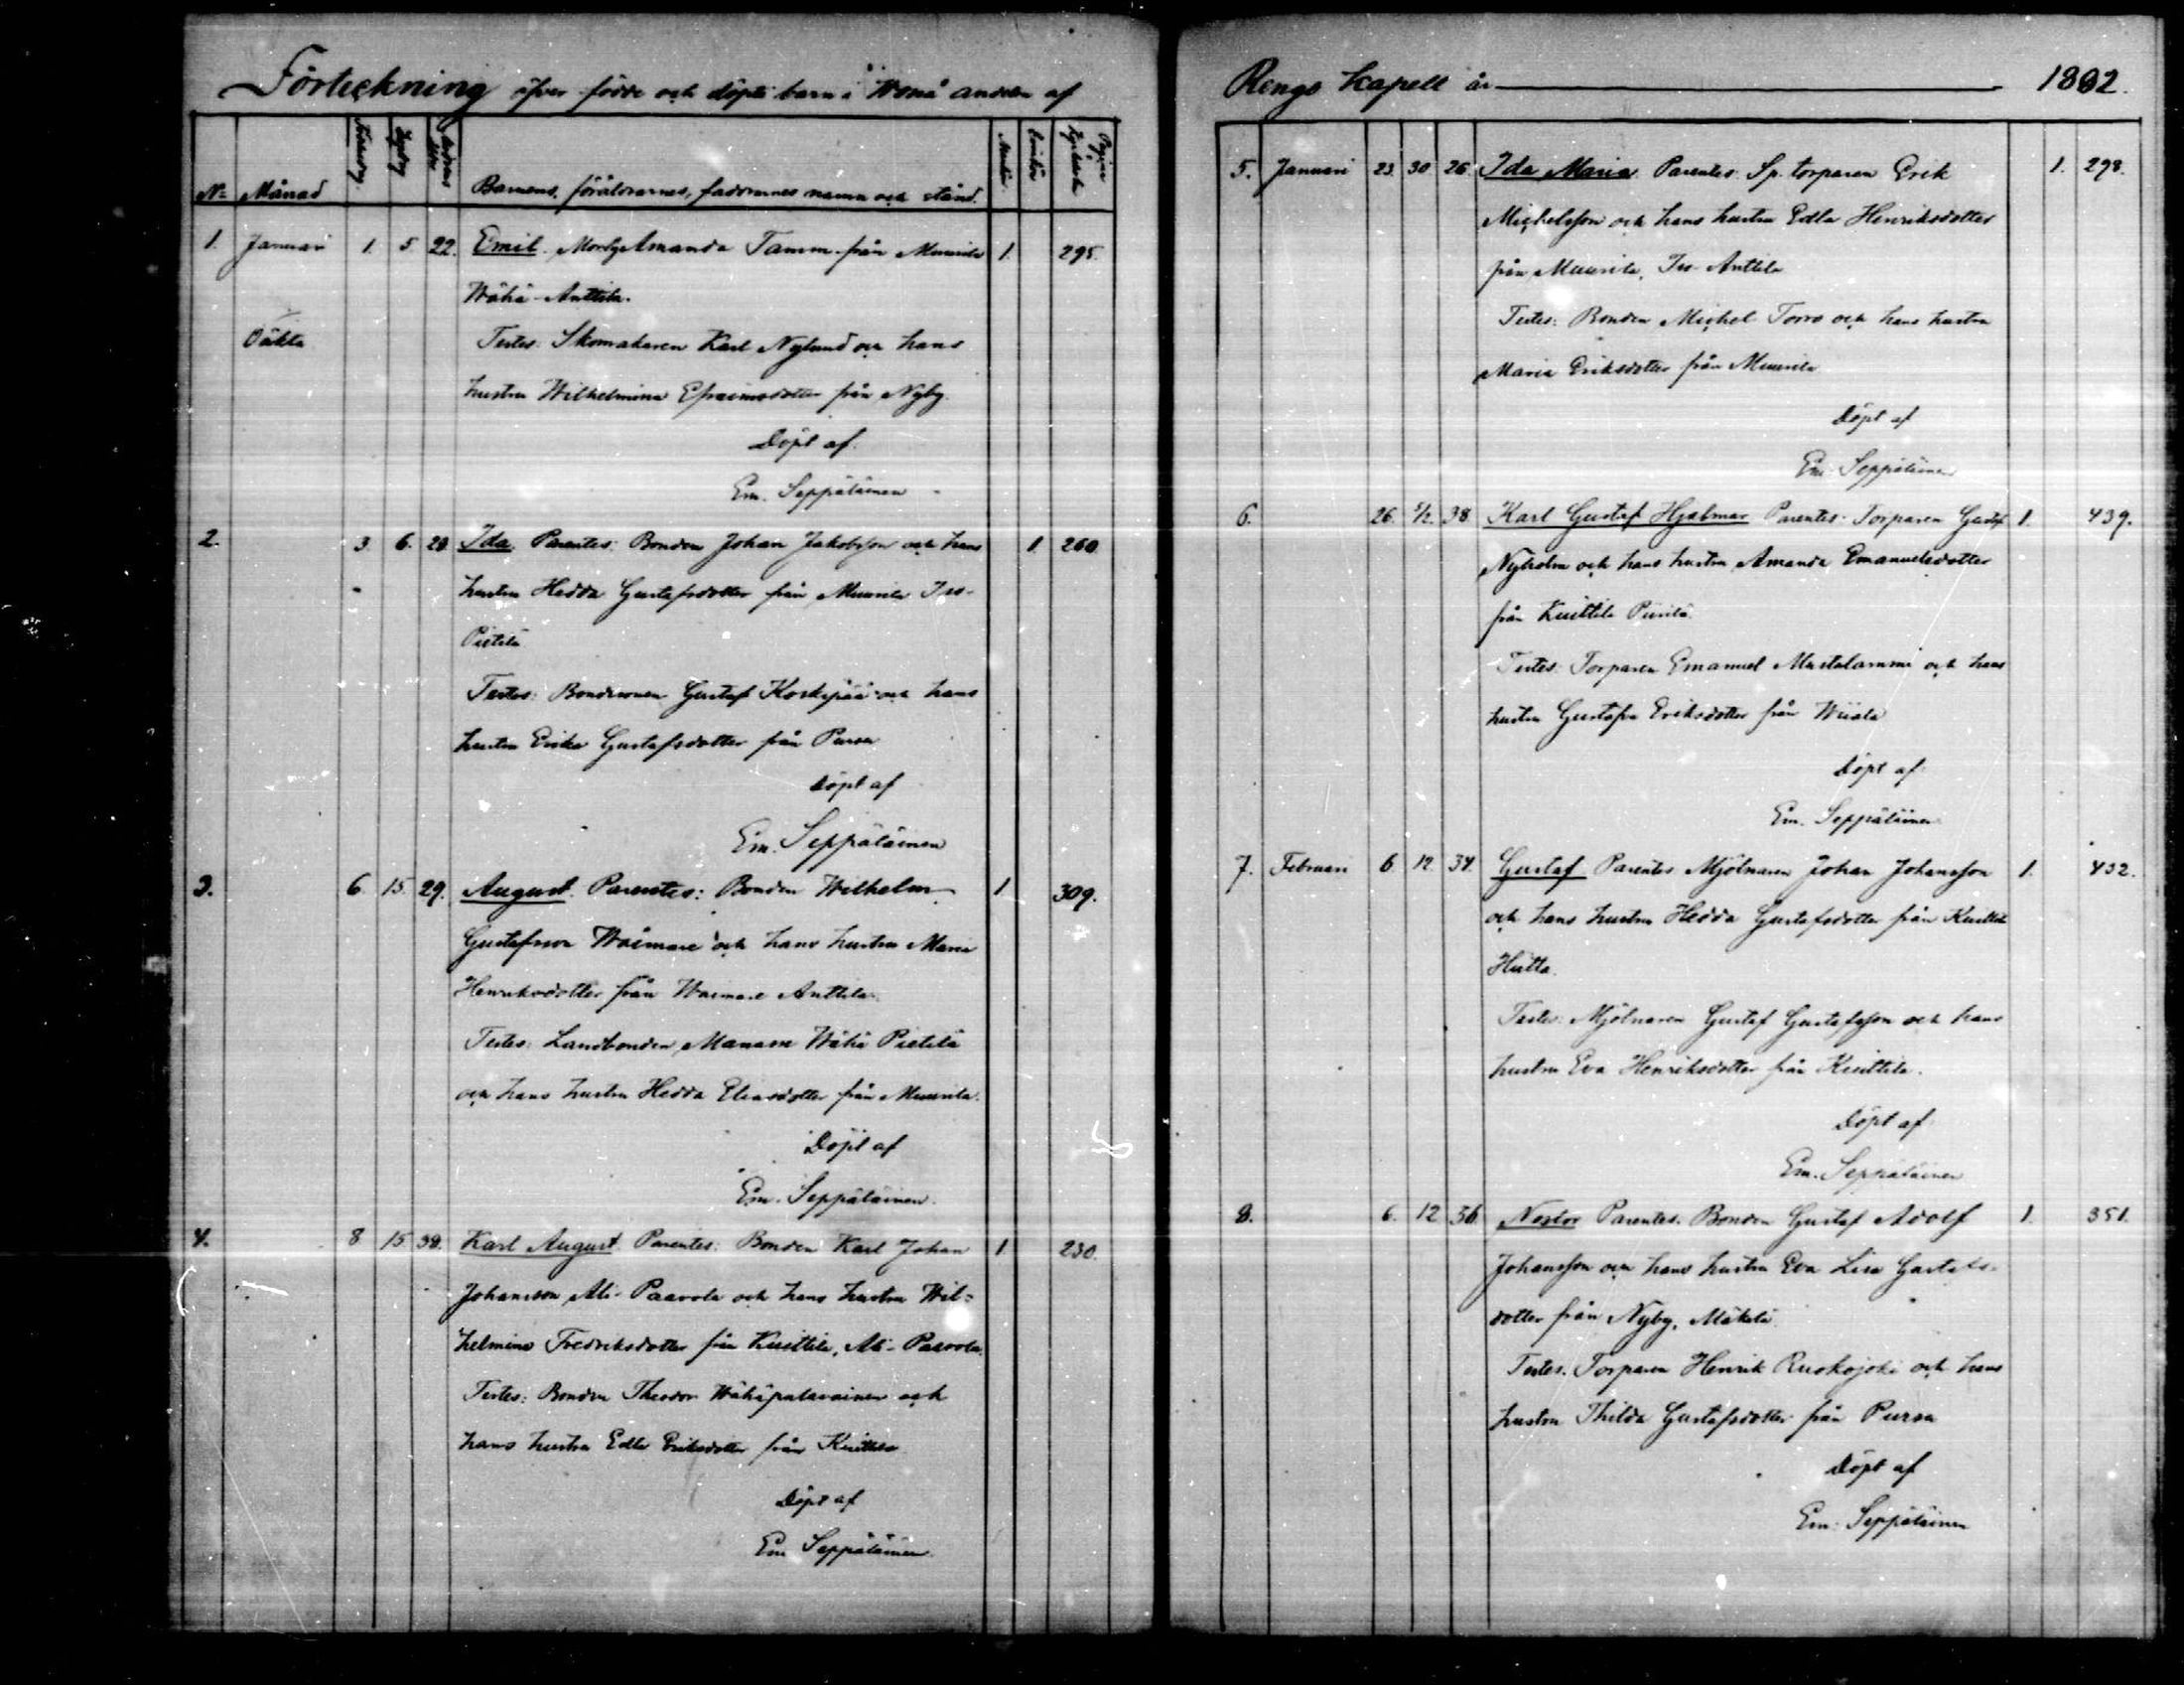 Förteckning öfver födde och döpte barn i Wonå andelen af
No Månad Födelsedag Dopdag Modrens ålder Barnens, föräldrarnes, faddrarnes namn och stånd. Mankön Qvinkön Pagina i Kyrkoboken
1. Januari 1. 5 22. Emil. Moder Amanda Tamm från Muurila 1. 295.
Wähä-Anttila.
Oäkta Testes: Skomakaren Karl Nylund och hans
hustru Wilhelmina Efraimsdotter från Nyby.
Döpt af
Em. Seppäläinen
2. 3. 6. 28. Ida. Parentes: Bonden Johan Jakobsson och hans 1. 260.
hustru Hedda Gustafsdotter från Muurila Iso-
Pietilä
Testes: Bondesonen Gustaf Koskipää och hans
hustru Erika Gustafsdotter från Pursa
Döpt af
Em. Seppäläinen
3. 6. 15. 29. August. Parentes: Bonden Wilhelm 1 309.
Gustafsson Waimare och hans hustru Maria
Henriksdotter från Waimare Anttila.
Testes: Landbonden Manasse Wähä Pietilä
och hans hustru Hedda Eliasdotter från Muurila.
Döpt af
Em. Seppäläinen.
4. 8 15 38. Karl August. Parentes: Bonden Karl Johan 1. 230.
Johansson Ali-Paavola och hans hustru Wil-
helmina Fredriksdotter från Kuittila, Ali-Paavola.
Testes: Bonden Theodor Wähäpatavainen och
hans hustru Edla Eriksdotter från Kuittila
Döpt af
Em Seppäläinen.
Rengo Kapell år 1882.
5. Januari 23. 30 26. Ida Maria. Parentes: Sp. torparen Erik 1. 298.
Michelsson och hans hustru Edla Henriksdotter
från Muurila, Iso-Anttila
Testes: Bonden Michel Torro och hans hustru
Maria Eriksdotter från Muurila
Döpt af
Em Seppäläinen
6. 26. 5/2. 38. Karl Gustaf Hjalmar Parentes: Torparen Gustaf 1. 439.
Nyholm och hans hustru Amanda Emanuelsdotter
från Kuittila Piirilä.
Testes: Torparen Emanuel Mustalammi och hans
hustru Gustafva Eriksdotter från Wiiala
Döpt af
Em. Seppäläinen
7. Februari 6 12. 34. Gustaf Parentes Mjölnaren Johan Johansson 1. 432.
och hans hustru Hedda Gustafsdotter från Kuittila
Hiitta.
Testes: Mjölnaren Gustaf Gustafsson och hans
hustru Eva Henriksdotter från Kuittila.
Döpt af
Em. Seppäläinen
8. 6. 12 36. Nestor Parentes. Bonden Gustaf Adolf 1. 351.
Johansson och hans hustru Eva Lisa Gustafs-
dotter från Nyby, Mäkelä.
Testes. Torparen Henrik Ruokojoki och hans
hustru Thilda Gustafsdotter från Pursa
Döpt af
Em. Seppäläinen